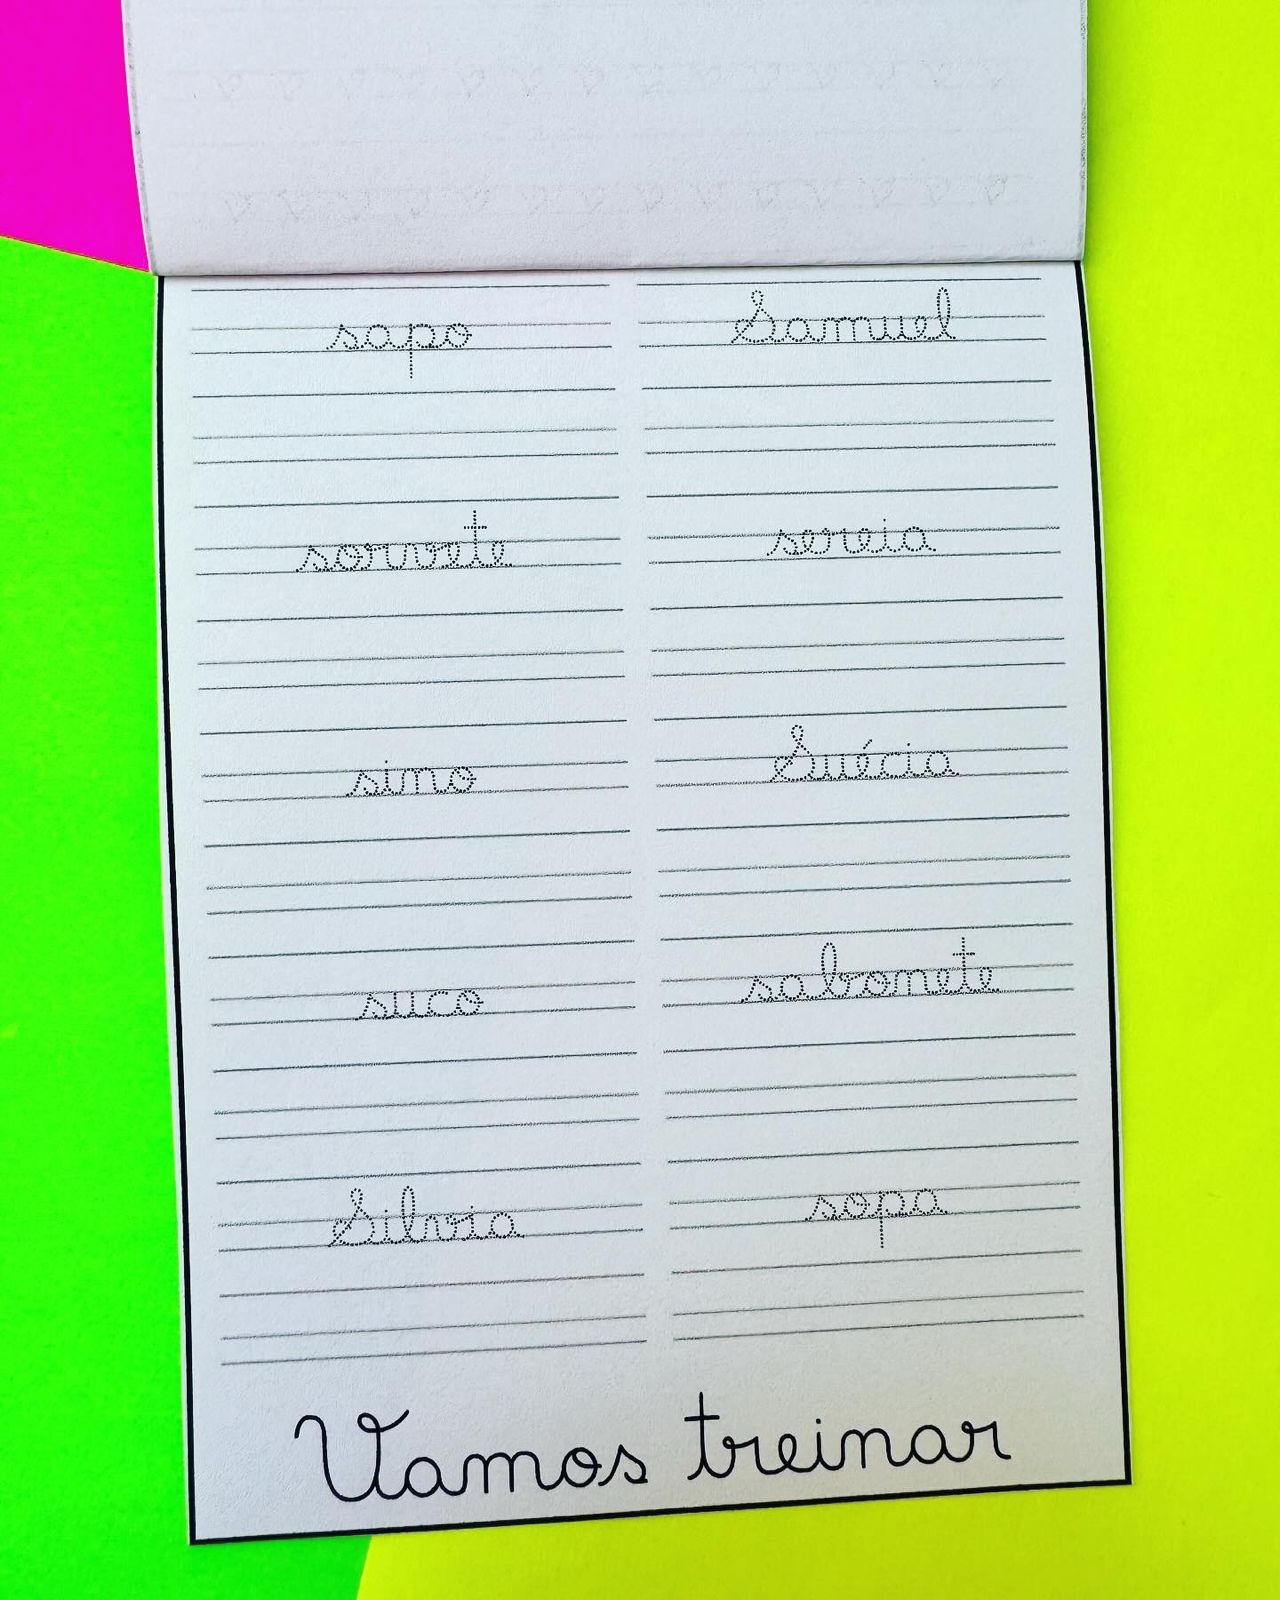 sapo Samuel
sorvete sereia
sino Suécia
suco sabonete
Silvia sopa
Vamos treinar